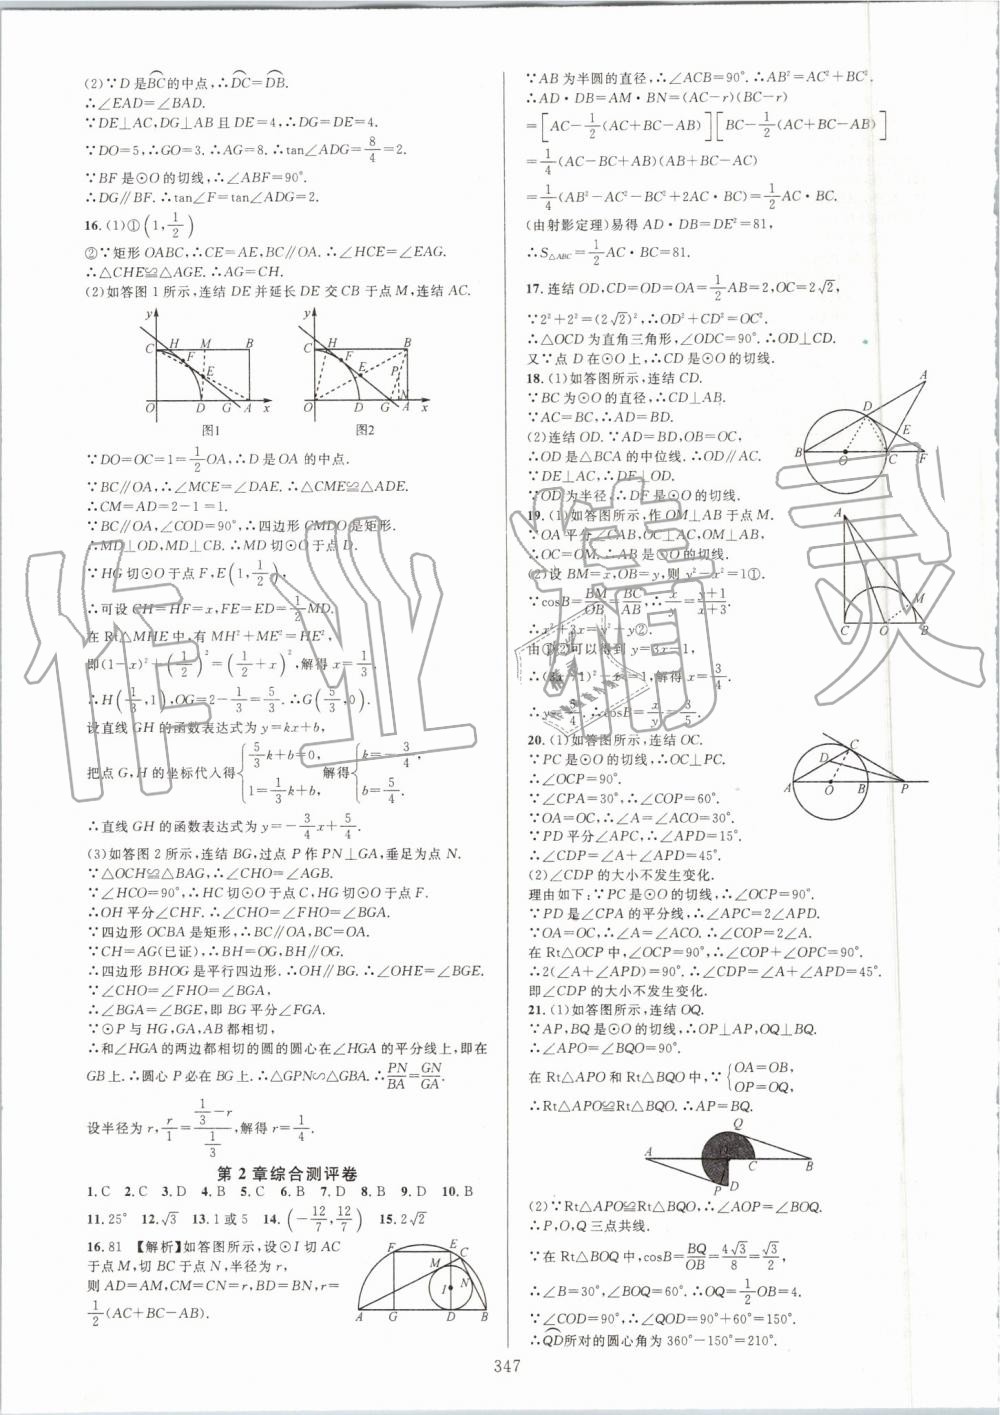 (2)∵D是BC的中点,∴DC=DB.
∴∠EAD=∠BAD.
∵DE⊥AC,DG⊥AB且DE=4,∴DG=DE=4.
∵DO=5,∴GO=3.∴AG=8.∴tan∠ADG=8/4=2.
∵BF是⊙O的切线,∴∠ABF=90°.
∴DG∥BF.∴tan∠F=tan∠ADG=2.
16.(1)①(1,1/2)
②∵矩形OABC,∴CE=AE,BC∥OA.∴∠HCE=∠EAG.
∴△CHE≌△AGE.∴AG=CH.
(2)如答图1所示,连结DE并延长DE交CB于点M,连结AC.
y C H M B F E O D G A x
图1
y C H B F E P O D G N A x
图2
∵DO=OC=1=1/2OA,∴D是OA的中点.
∵BC∥OA,∴∠MCE=∠DAE.∴△CME≌△ADE.
∴CM=AD=2-1=1.
∵BC∥OA,∠COD=90°,∴四边形CMDO是矩形.
∴MD⊥OD,MD⊥CB.∴MD切⊙O于点D.
∵HG切⊙O于点F,E(1,1/2),
∴可设CH=HF=x,FE=ED=1/2=MD.
在Rt△MHE中,有MH²+ME²=HE²,
即(1-x)²+(1/2)²=(1/2+x)²,解得x=1/3.
∴H(1/3,1),OG=2-1/3=5/3.∴G(5/3,0).
设直线GH的函数表达式为y=kx+b,
把点G,H的坐标代入得{5/3k+b=0, 1=1/3k+b, 解得{k=-3/4, b=5/4.
∴直线GH的函数表达式为y=-3/4x+5/4.
(3)如答图2所示,连结BG,过点P作PN⊥GA,垂足为点N.
∵△OCH≌△BAG,∴∠CHO=∠AGB.
∵∠HCO=90°,∴HC切⊙O于点C,HG切⊙O于点F.
∴OH平分∠CHF.∴∠CHO=∠FHO=∠BGA.
∵四边形OCBA是矩形,∴BC∥OA,BC=OA.
∵CH=AG(已证),∴BH=OG,BH∥OG.
∴四边形BHOG是平行四边形.∴OH∥BG.∴∠OHE=∠BGE.
∵∠CHO=∠FHO=∠BGA,
∴∠BGA=∠BGE,即BG平分∠FGA.
∵⊙P与HG,GA,AB都相切,
∴和∠HGA的两边都相切的圆的圆心在∠HGA的平分线上,即在
GB上.∴圆心P必在BG上.∴△GPN∽△GBA.∴PN/BA=GN/GA.
设半径为r,r/1=(1/3-r)/(1/3),解得r=1/4.
第2章综合测评卷
1.C 2.C 3.D 4.B 5.C 6.B 7.B 8.B 9.D 10.B
11.25° 12.√3 13.1或5 14.(-12/7,12/7) 15.2√2
16.81 【解析】如答图所示,设⊙I切AC
于点M,切BC于点N,半径为r,
则AD=AM,CM=CN,BD=BN,r=
1/2(AC+BC-AB).
F E C M N I A G D B
∵AB为半圆的直径,∴∠ACB=90°.∴AB²=AC²+BC².
∴AD·DB=AM·BN=(AC-r)(BC-r)
=[AC-1/2(AC+BC-AB)][BC-1/2(AC+BC-AB)]
=1/4(AC-BC+AB)(AB+BC-AC)
=1/4(AB²-AC²-BC²+2AC·BC)=1/2AC·BC.
(由射影定理)易得AD·DB=DE²=81,
∴S△ABC=1/2AC·BC=81.
17.连结OD,CD=OD=OA=1/2AB=2,OC=2√2,
∵2²+2²=(2√2)²,∴OD²+CD²=OC².
∴△OCD为直角三角形,∠ODC=90°.∴OD⊥CD.
又∵点D在⊙O上,∴CD是⊙O的切线.
18.(1)如答图所示,连结CD.
∵BC为⊙O的直径,∴CD⊥AB.
∵AC=BC,∴AD=BD.
(2)连结OD.∵AD=BD,OB=OC,
∴OD是△BCA的中位线.∴OD∥AC.
∵DE⊥AC,∴DE⊥OD.
∵OD为半径,∴DF是⊙O的切线.
A D E B O C F
19.(1)如答图所示,作OM⊥AB于点M.
∵OA平分∠CAB,OC⊥AC,OM⊥AB,
∴OC=OM.∴AB是⊙O的切线.
(2)设BM=x,OB=y,则y²-x²=1①.
∵cosB=BM/OB=BC/AB,∴x/y=(y+1)/(x+3).
∴x²+3x=y²+y②.
由①②可以得到y=3x-1,
∴(3x-1)²-x²=1,解得x=3/4.
∴y=5/4.∴cosB=x/y=3/5.
A M C O B
20.(1)如答图所示,连结OC.
∵PC是⊙O的切线,∴OC⊥PC.
∴∠OCP=90°.
∵∠CPA=30°,∴∠COP=60°.
∵OA=OC,∴∠A=∠ACO=30°.
∵PD平分∠APC,∴∠APD=15°.
∴∠CDP=∠A+∠APD=45°.
(2)∠CDP的大小不发生变化.
理由如下:∵PC是⊙O的切线,∴∠OCP=90°.
∵PD是∠CPA的平分线,∴∠APC=2∠APD.
∵OA=OC,∴∠A=∠ACO.∴∠COP=2∠A.
在Rt△OCP中,∠OCP=90°,∴∠COP+∠OPC=90°.
∴2(∠A+∠APD)=90°.∴∠CDP=∠A+∠APD=45°.
即∠CDP的大小不发生变化.
C D A O B P
21.(1)如答图所示,连结OQ.
∵AP,BQ是⊙O的切线,∴OP⊥AP,OQ⊥BQ.
∴∠APO=∠BQO=90°.
在Rt△APO和Rt△BQO中,∵{OA=OB, OP=OQ,
∴Rt△APO≌Rt△BQO.∴AP=BQ.
Q A C B P D
(2)∵Rt△APO≌Rt△BQO,∴∠AOP=∠BOQ.
∴P,O,Q三点共线.
∵在Rt△BOQ中,cosB=BQ/OB=4√3/8=√3/2,
∴∠B=30°,∠BOQ=60°.∴OQ=1/2OB=4.
∵∠COD=90°,∴∠QOD=90°+60°=150°.
∴QD所对的圆心角为360°-150°=210°.
347
作业精灵